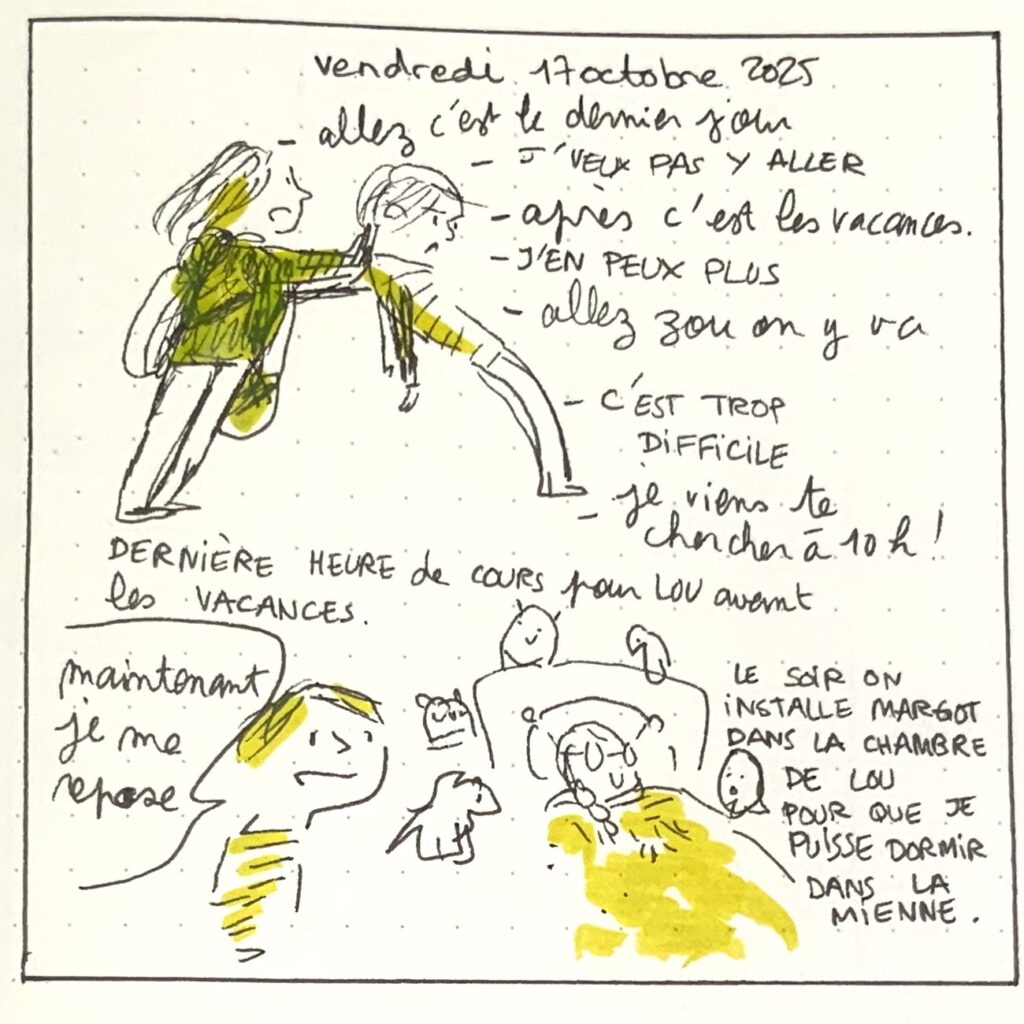 vendredi 17 octobre 2025
- allez c'est le dernier jour
- J'VEUX PAS Y ALLER
- après c'est les vacances.
- J'EN PEUX PLUS
- allez zou on y va
- C'EST TROP
DIFFICILE
- je viens te
chercher à 10 h !
DERNIÈRE HEURE de COURS pour LOU avant
les VACANCES.
maintenant
je me
repose
LE SOIR ON
INSTALLE MARGOT
DANS LA CHAMBRE
DE LOU
POUR QUE JE
PUISSE DORMIR
DANS LA
MIENNE.